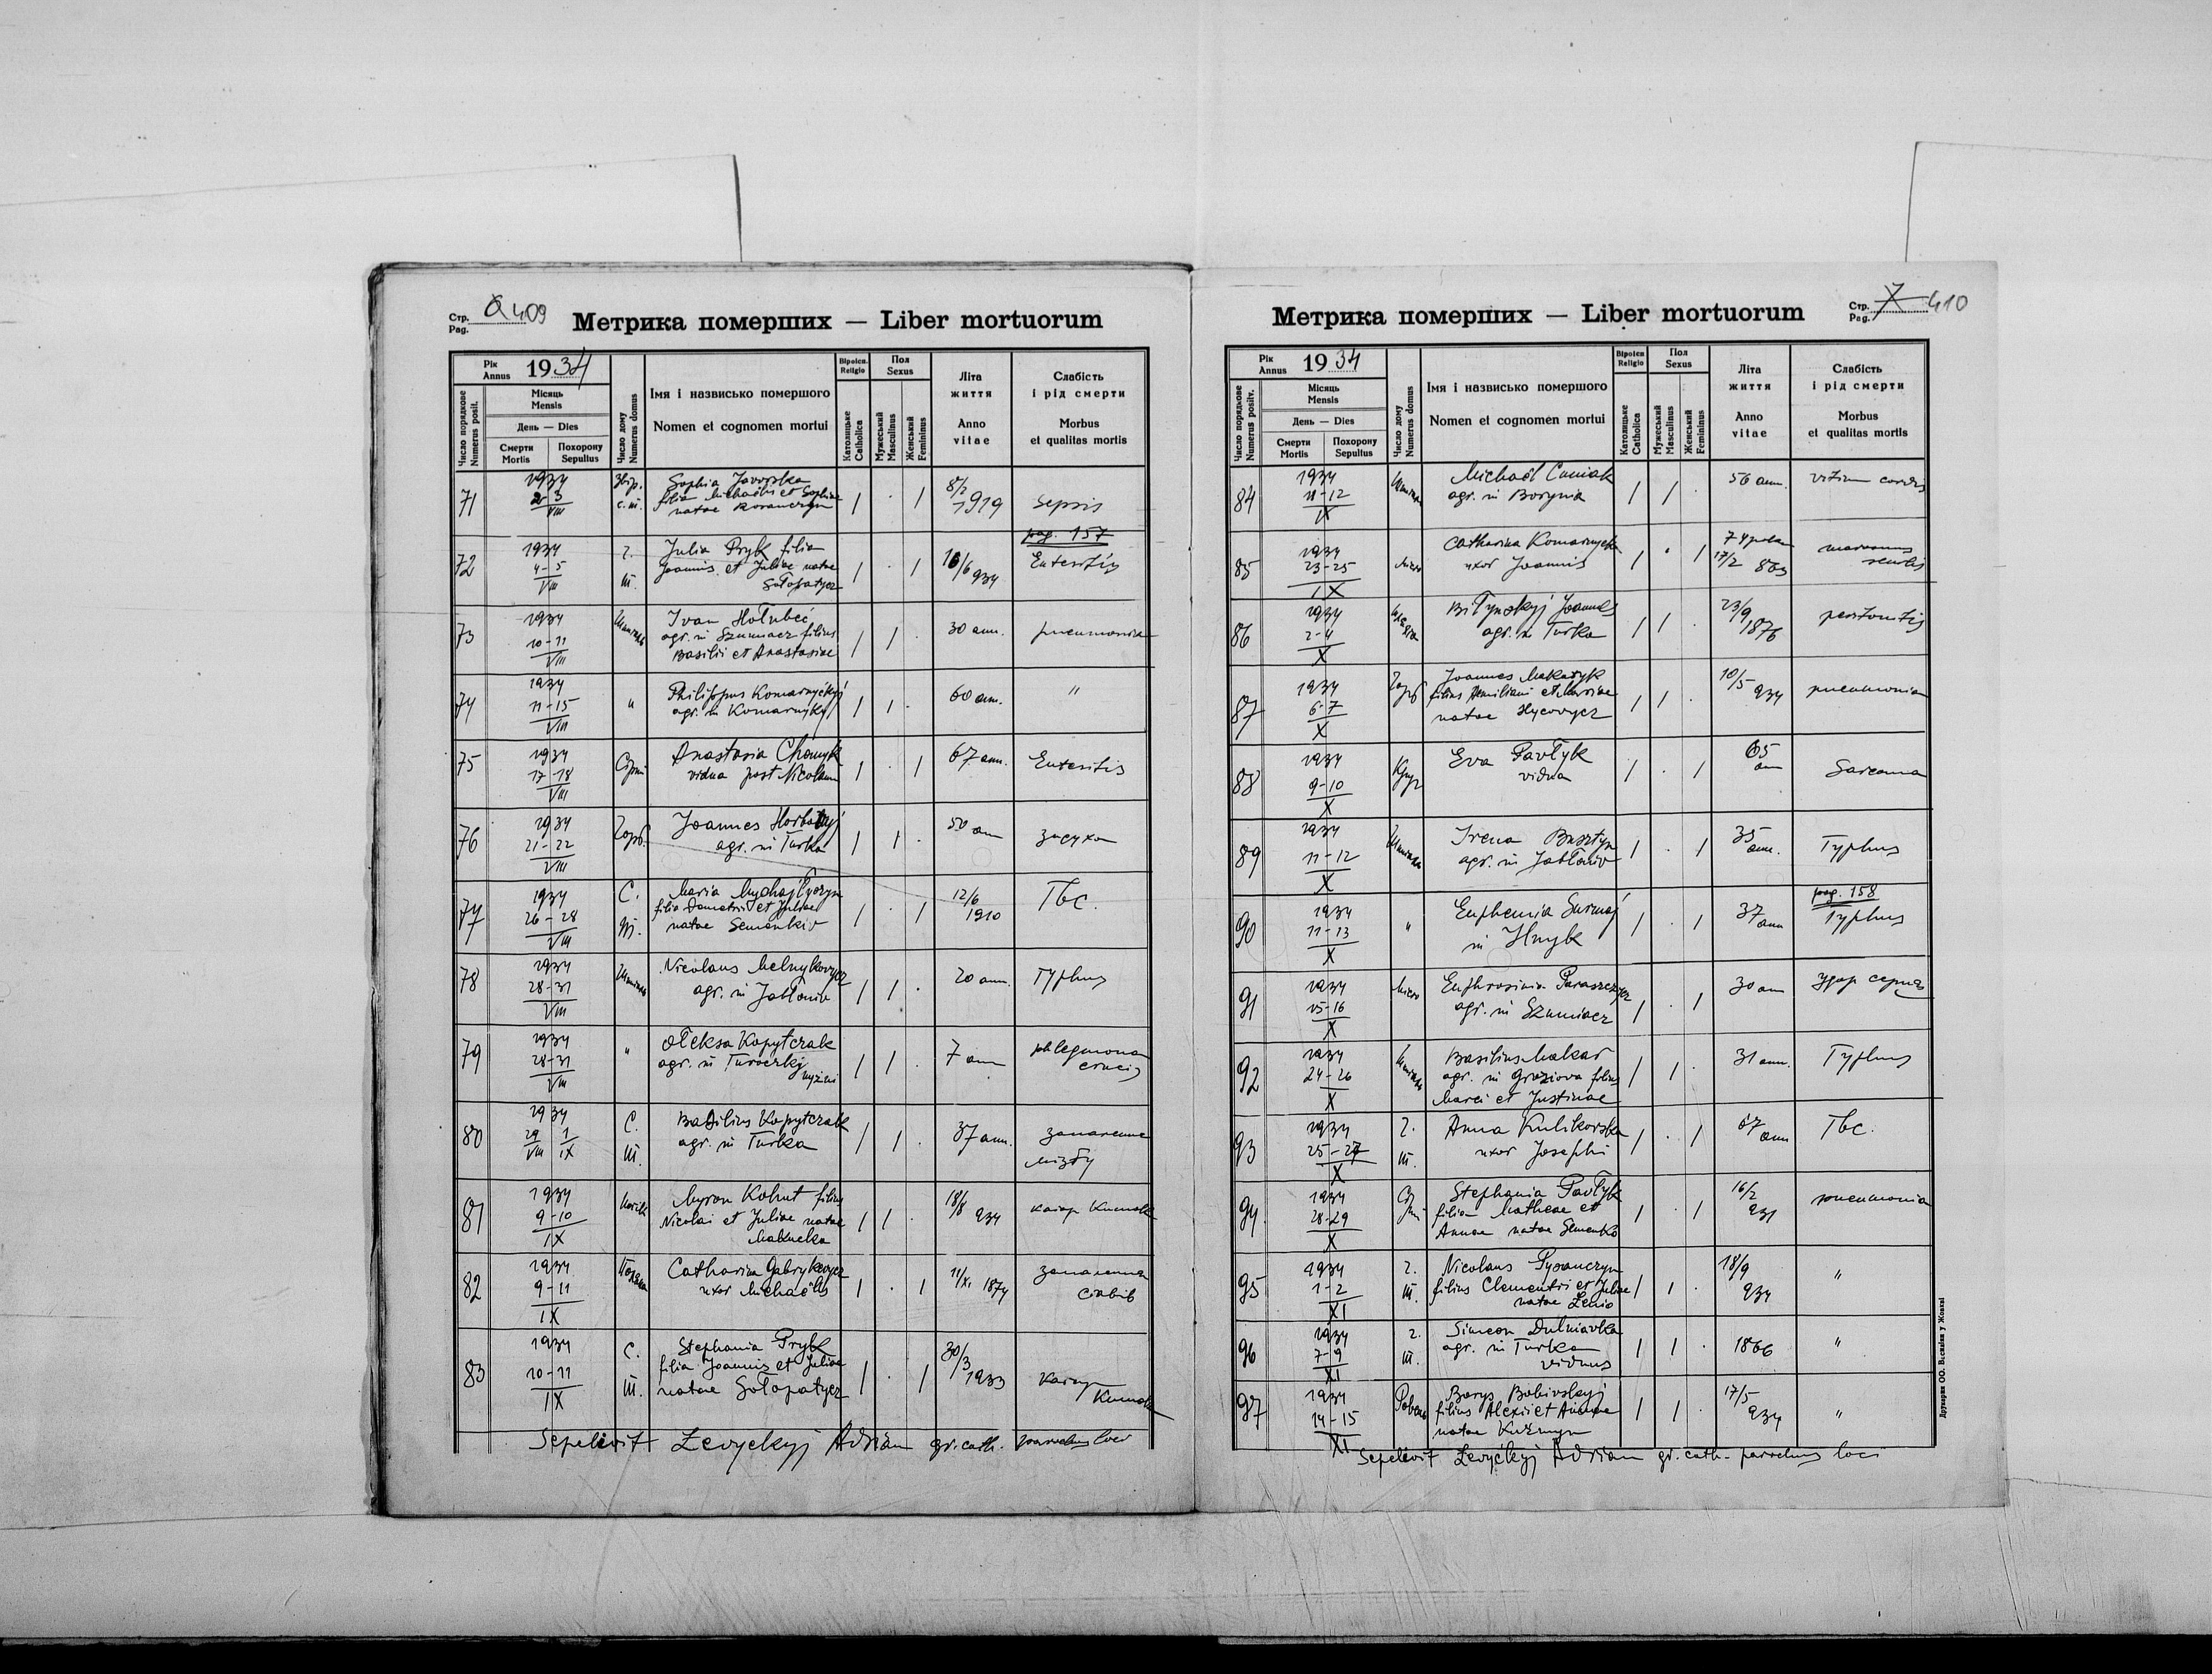 Стр. Pag. 409
Метрика померших — Liber mortuorum
Рік Annus 1934
Число порядкове Numerus posit.
Місяць Mensis
День — Dies
Смерти Mortis
Похорону Sepultus
Число дому Numerus domus
Імя і назвисько помершого
Nomen et cognomen mortui
Віроісп. Religio
Католицьке Catholica
Пол Sexus
Мужеський Masculinus
Женський Femininus
Літа життя
Anno vitae
Слабість і рід смерти
Morbus et qualitas mortis
71 1934 2-3 VIII
Sophia Javorska
filia Michaëlis et Sophiae
natae
/ . / 8/2 1919 Sepsis
pag. 157
72 1934 4-5 VIII г. ш.
Julia Pryk filia
Joannis et Juliae natae
Sołopatycz
/ . / 6 934 Enteritis
73 1934 10-11 VIII
Ivan Hołubeć
agr. in Szumiacz filius
Basilii et Anastasiae
/ / . 30 ann. pneumonia
74 1934 11-15 VIII "
Philippus Komarnyćkyj
agr. in Komarnyky
/ / . 60 ann. "
75 1934 17-18 VIII
Anastasia Chomyk
vidua post Nicolaum
/ . / 67 ann. Enteritis
76 1934 21-22 VIII Горб.
Joannes
agr. in Turka
/ / . 50 ann
77 1934 26-28 VIII С. ш.
Maria Mychajłyczyn
filia Demetrii et Juliae
natae Semenkiv
/ . / 12/6 1910 Tbc.
78 1934 28-31 VIII
Nicolaus Melnykovycz
agr. in Jabłoniv
/ / . 20 ann. Typhus
79 1934 28-31 VIII "
Ołeksa Kopytczak
agr. in Turoczky
nyżni
/ / . 7 ann phlegmona
cruris
80 1934 29 VIII 1 IX С. ш.
Basilius Kopytczak
agr. in Turka
/ / . 37 ann. запалення
мізґу
81 1934 9-10 IX
Myron Kohut filius
Nicolai et Juliae natae
/ / . 18/8 934 катар Кишок
82 1934 9-11 IX
Catharina Gabrykevycz
uxor Michaëlis
/ . / 11/XI 1874 запалення
83 1934 10-11 IX С. ш.
Stephania Pryk
filia Joannis et Juliae
natae Sołopatycz
/ . / 30/3 1933 катар
Кишок
Sepelivit Łevyckyj Adrian gr. cath. parochus loci
Стр. Pag. 7 410
Метрика померших — Liber mortuorum
Рік Annus 1934
Число порядкове Numerus positv.
Місяць Mensis
День — Dies
Смерти Mortis
Похорону Sepultus
Число дому Numerus domus
Імя і назвисько помершого
Nomen et cognomen mortui
Віроісп Religio
Католицьке Catholica
Пол Sexus
Мужеський Masculinus
Женський Femininus
Літа життя
Anno vitae
Слабість і рід смерти
Morbus et qualitas mortis
84 1934 11-12 IX
Michaël
agr. in Borynia
/ / . 56 ann. vitium cordis
85 1934 23-25 IX місто
Catharina Komarnycka
uxor Joannis
/ . / 17/2 863 marasmus
senilis
86 1934 2-4 X
Biłynskyj Joannes
agr. in Turka
/ / . 23/9 1876 peritonitis
87 1934 6-7 X Горб
Joannes Makaryk
filius Aemiliani et Mariae
natae Hycovycz
/ / . 10/5 934 pneumonia
88 1934 9-10 X
Eva Pavłyk
vidua
/ . / 65 ann Sarcoma
89 1934 11-12 X
Irena Busztyn
agr. in Jabłoniv
/ . / 35 ann. Typhus
pag. 158
90 1934 11-13 X "
Euphemia Surmaj
in Hnyk
/ . / 37 ann Typhus
91 1934 15-16 X місто
Euphrosinia Paraszczycz
agr. in Szumiacz
/ . / 30 ann удар серця
92 1934 24-26 X
Basilius Makar
agr. in Groziova filius
Marci et Justinae
/ / . 31 ann. Typhus
93 1934 25-27 X г. ш.
Anna Kulikovska
uxor Josephi
/ . / 67 ann Tbc.
94. 1934 28-29 X
Stephania Pavłyk
filia Matheae et
Annae natae Semenko
/ . / 16/2 931 pneumonia
95 1934 1-2 XI г. ш.
Nicolaus Pysanczyn
filius Clementii et Juliae
natae Łenio
/ / . 18/9 934 "
96 1934 7-9 XI г. ш.
Simeon Dulniavka
agr. in Turka
viduus
/ / . 1866 "
97 1934 14-15 XI
Borys Bobivskyj
filius Alexii et Annae
natae Kuzmyn
/ / . 17/5 934 "
Sepelivit Łevyćkyj Adrian gr. cath. parochus loci
Друкарня ОО. Василіян у Жовкві